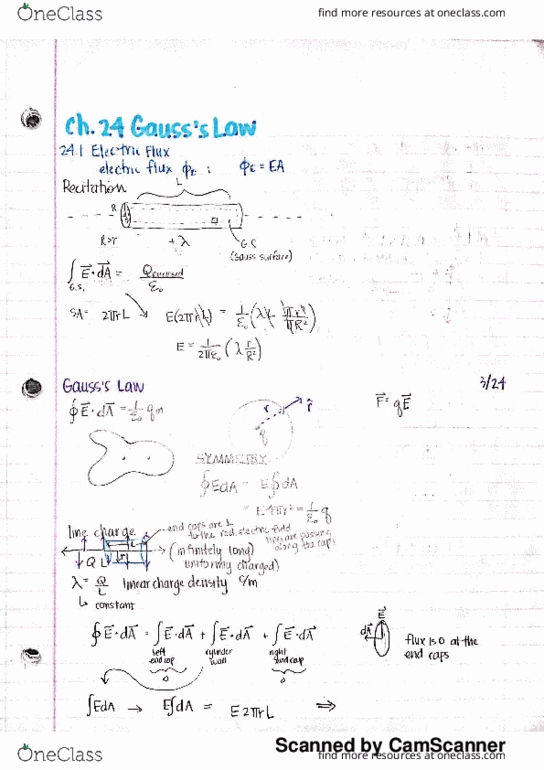 OneClass
find more resources at oneclass.com
Ch. 24 Gauss's Law
24.1 Electric Flux
electric flux ϕE : ϕE = EA
L
Recitation
R
R>r
+ λ
G.S
(Gauss surface)
∫ E⃗·dA⃗ = Qenclosed / ε₀
G.S.
SA = 2πrL
E(2πrL) = 1/ε₀ (λL πr²/πR²)
E = 1/2πε₀ (λ r/R²)
Gauss's Law
3/24
∮ E⃗·dA⃗ = 1/ε₀ qin
r
r̂
q
F⃗ = qE⃗
SYMMETRY
∮EdA = E∮dA
= E4πr² = 1/ε₀ q
line charge
end caps are ⊥
to the rad. electric field
lines are passing
along the caps
(infinitely long)
uniformly charged)
Q L
λ = Q/L linear charge density C/m
↳ constant
∮ E⃗·dA⃗ = ∫E⃗·dA⃗ + ∫E⃗·dA⃗ + ∫E⃗·dA⃗
left end cap
cylinder wall
right end cap
0
0
E⃗
dA⃗
flux is 0 at the
end caps
∫EdA → E∫dA = E 2πrL ⇒
Scanned by CamScanner
OneClass
find more resources at oneclass.com